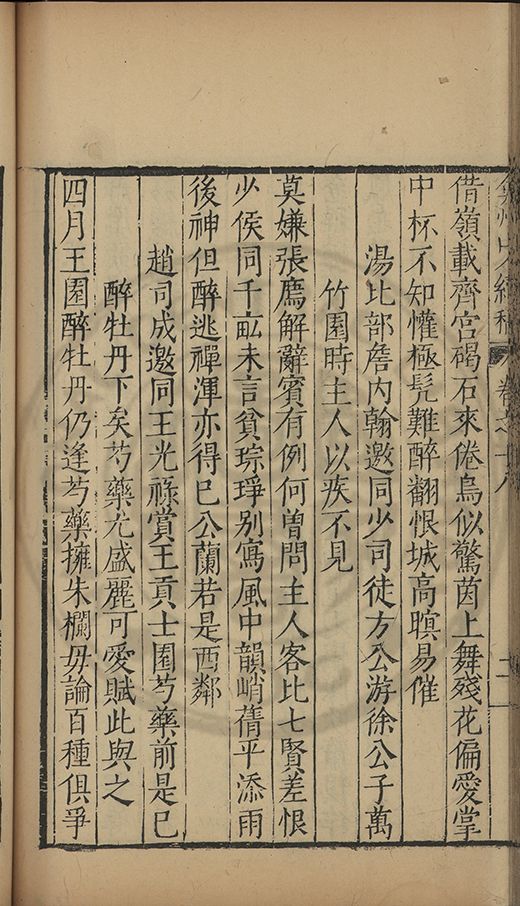 弇州山人續稿 卷之十八
借嶺載齊宮碣石來倦鳥似驚茵上舞殘花偏愛掌
中杯不知懽極髡難醉翻恨城高暝易催
湯比部詹內翰邀同少司徒方公游徐公子萬
竹園時主人以疾不見
莫嫌張廌解辭賓有例何曽問主人客比七賢差恨
少侯同千畝未言貧琮琤別寫風中韻峭蒨平添雨
後神但醉逃禪渾亦得巳公蘭若是西鄰
趙司成邀同王光祿賞王貢士園芍藥前是巳
醉牡丹下矣芍藥尤盛麗可愛賦此與之
四月王園醉牡丹仍逢芍藥擁朱欄毋論百種俱爭